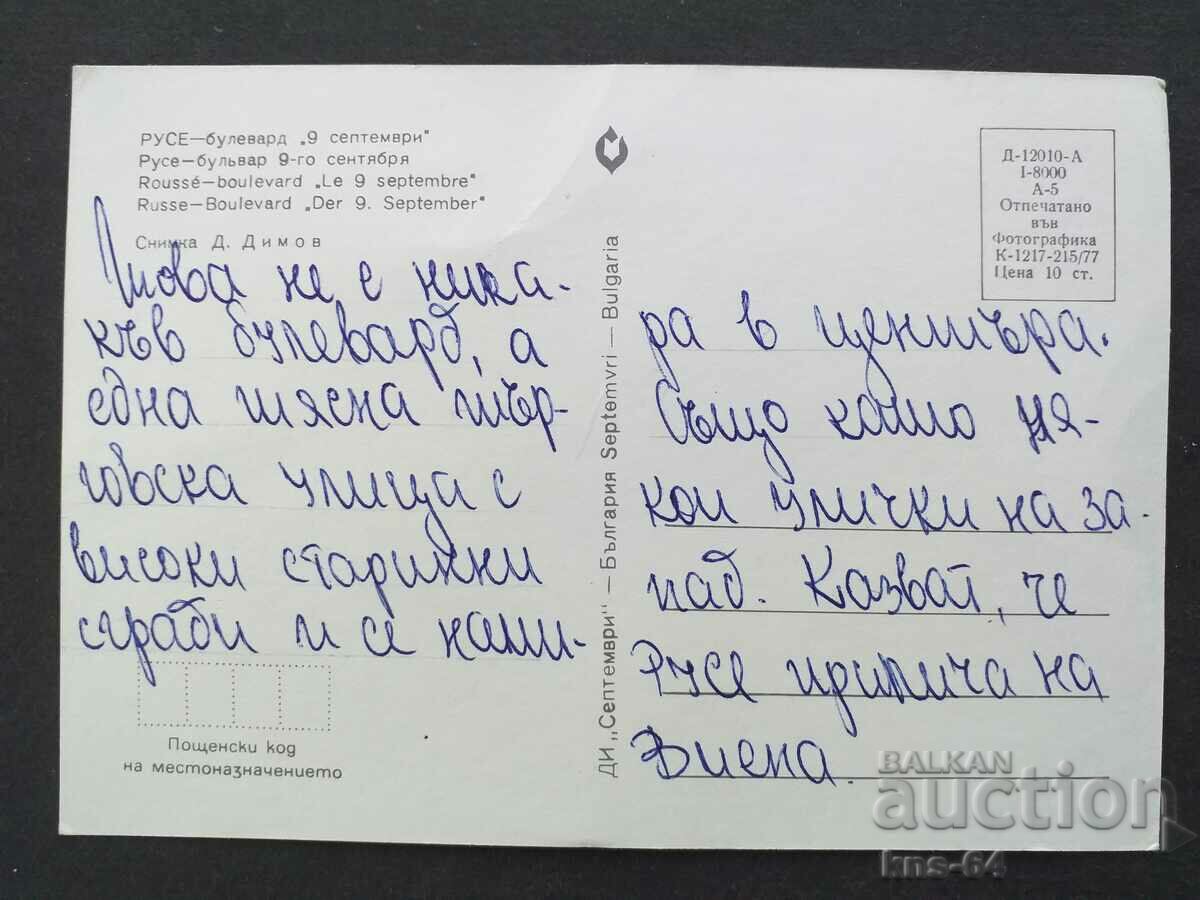 РУСЕ—булевард „9 септември"
Русе-бульвар 9-го сентября
Roussé—boulevard „Le 9 septembre"
Russe-Boulevard „Der 9. September"
Снимка Д. Димов
Това не е ника-
къв булевард, а
една тясна тър-
говска улица с
високи старинни
сгради и се нами-
Пощенски код
на местоназначението
ДИ „Септември" — България Septemvri — Bulgaria
Д-12010-А
I-8000
А-5
Отпечатано
във
Фотографика
К-1217-215/77
Цена 10 ст.
ра в центъра.
Също като ня-
кои улички на за-
пад. Казват, че
Русе прилича на
Виена.
BALKAN
auction
kns-64